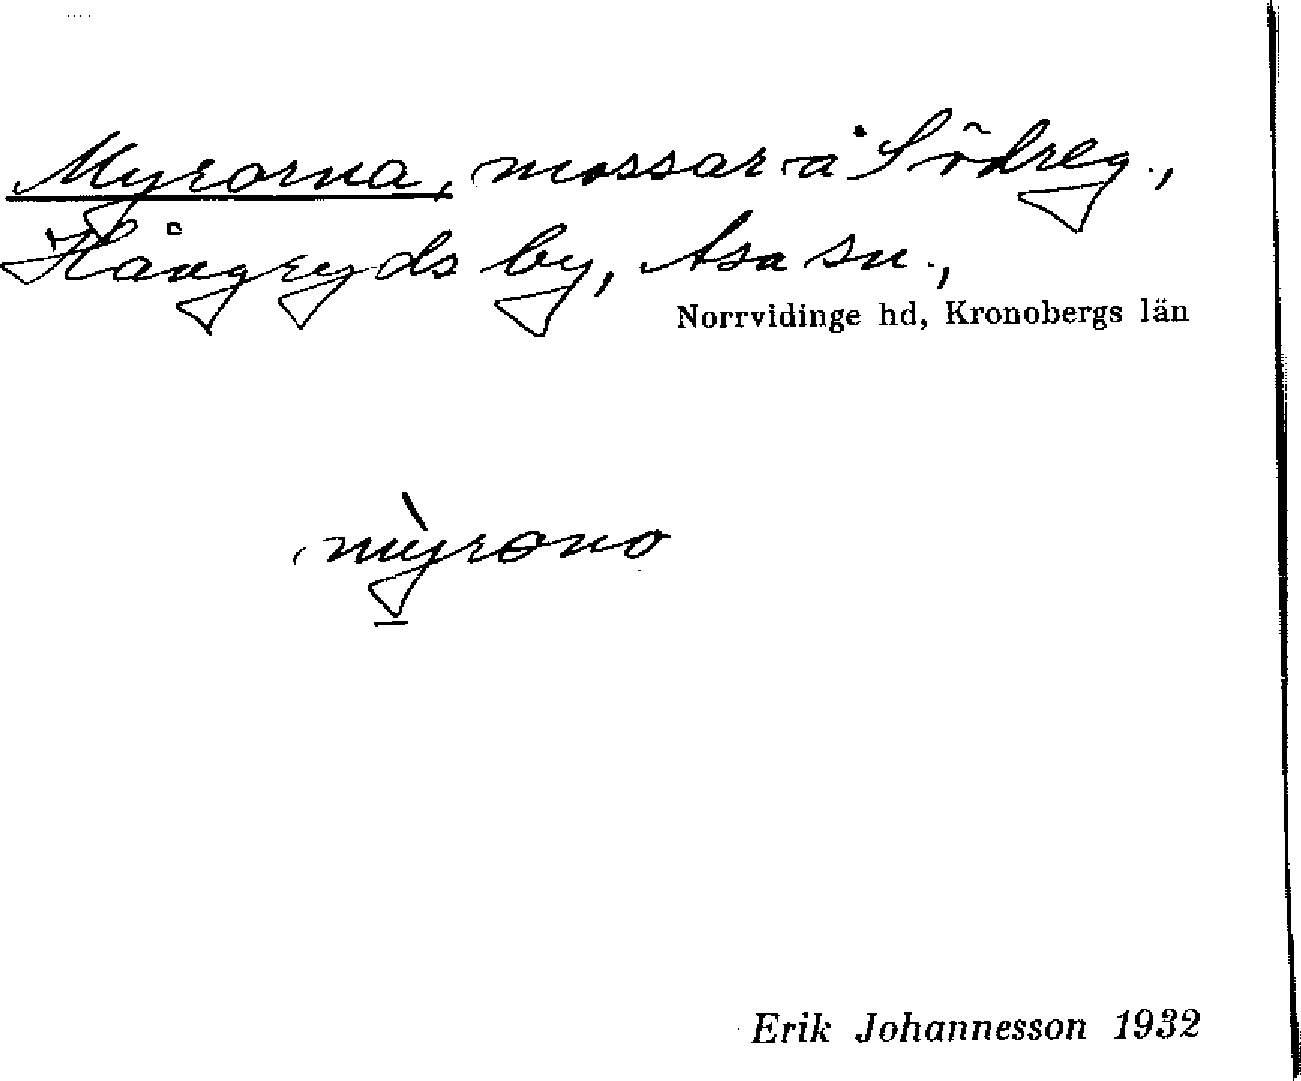 Myrorna, mossar å Södreg.,
Hångryds by, Asa sn.,
Norrvidinge hd, Kronobergs län
mỳrono
Erik Johannesson 1932